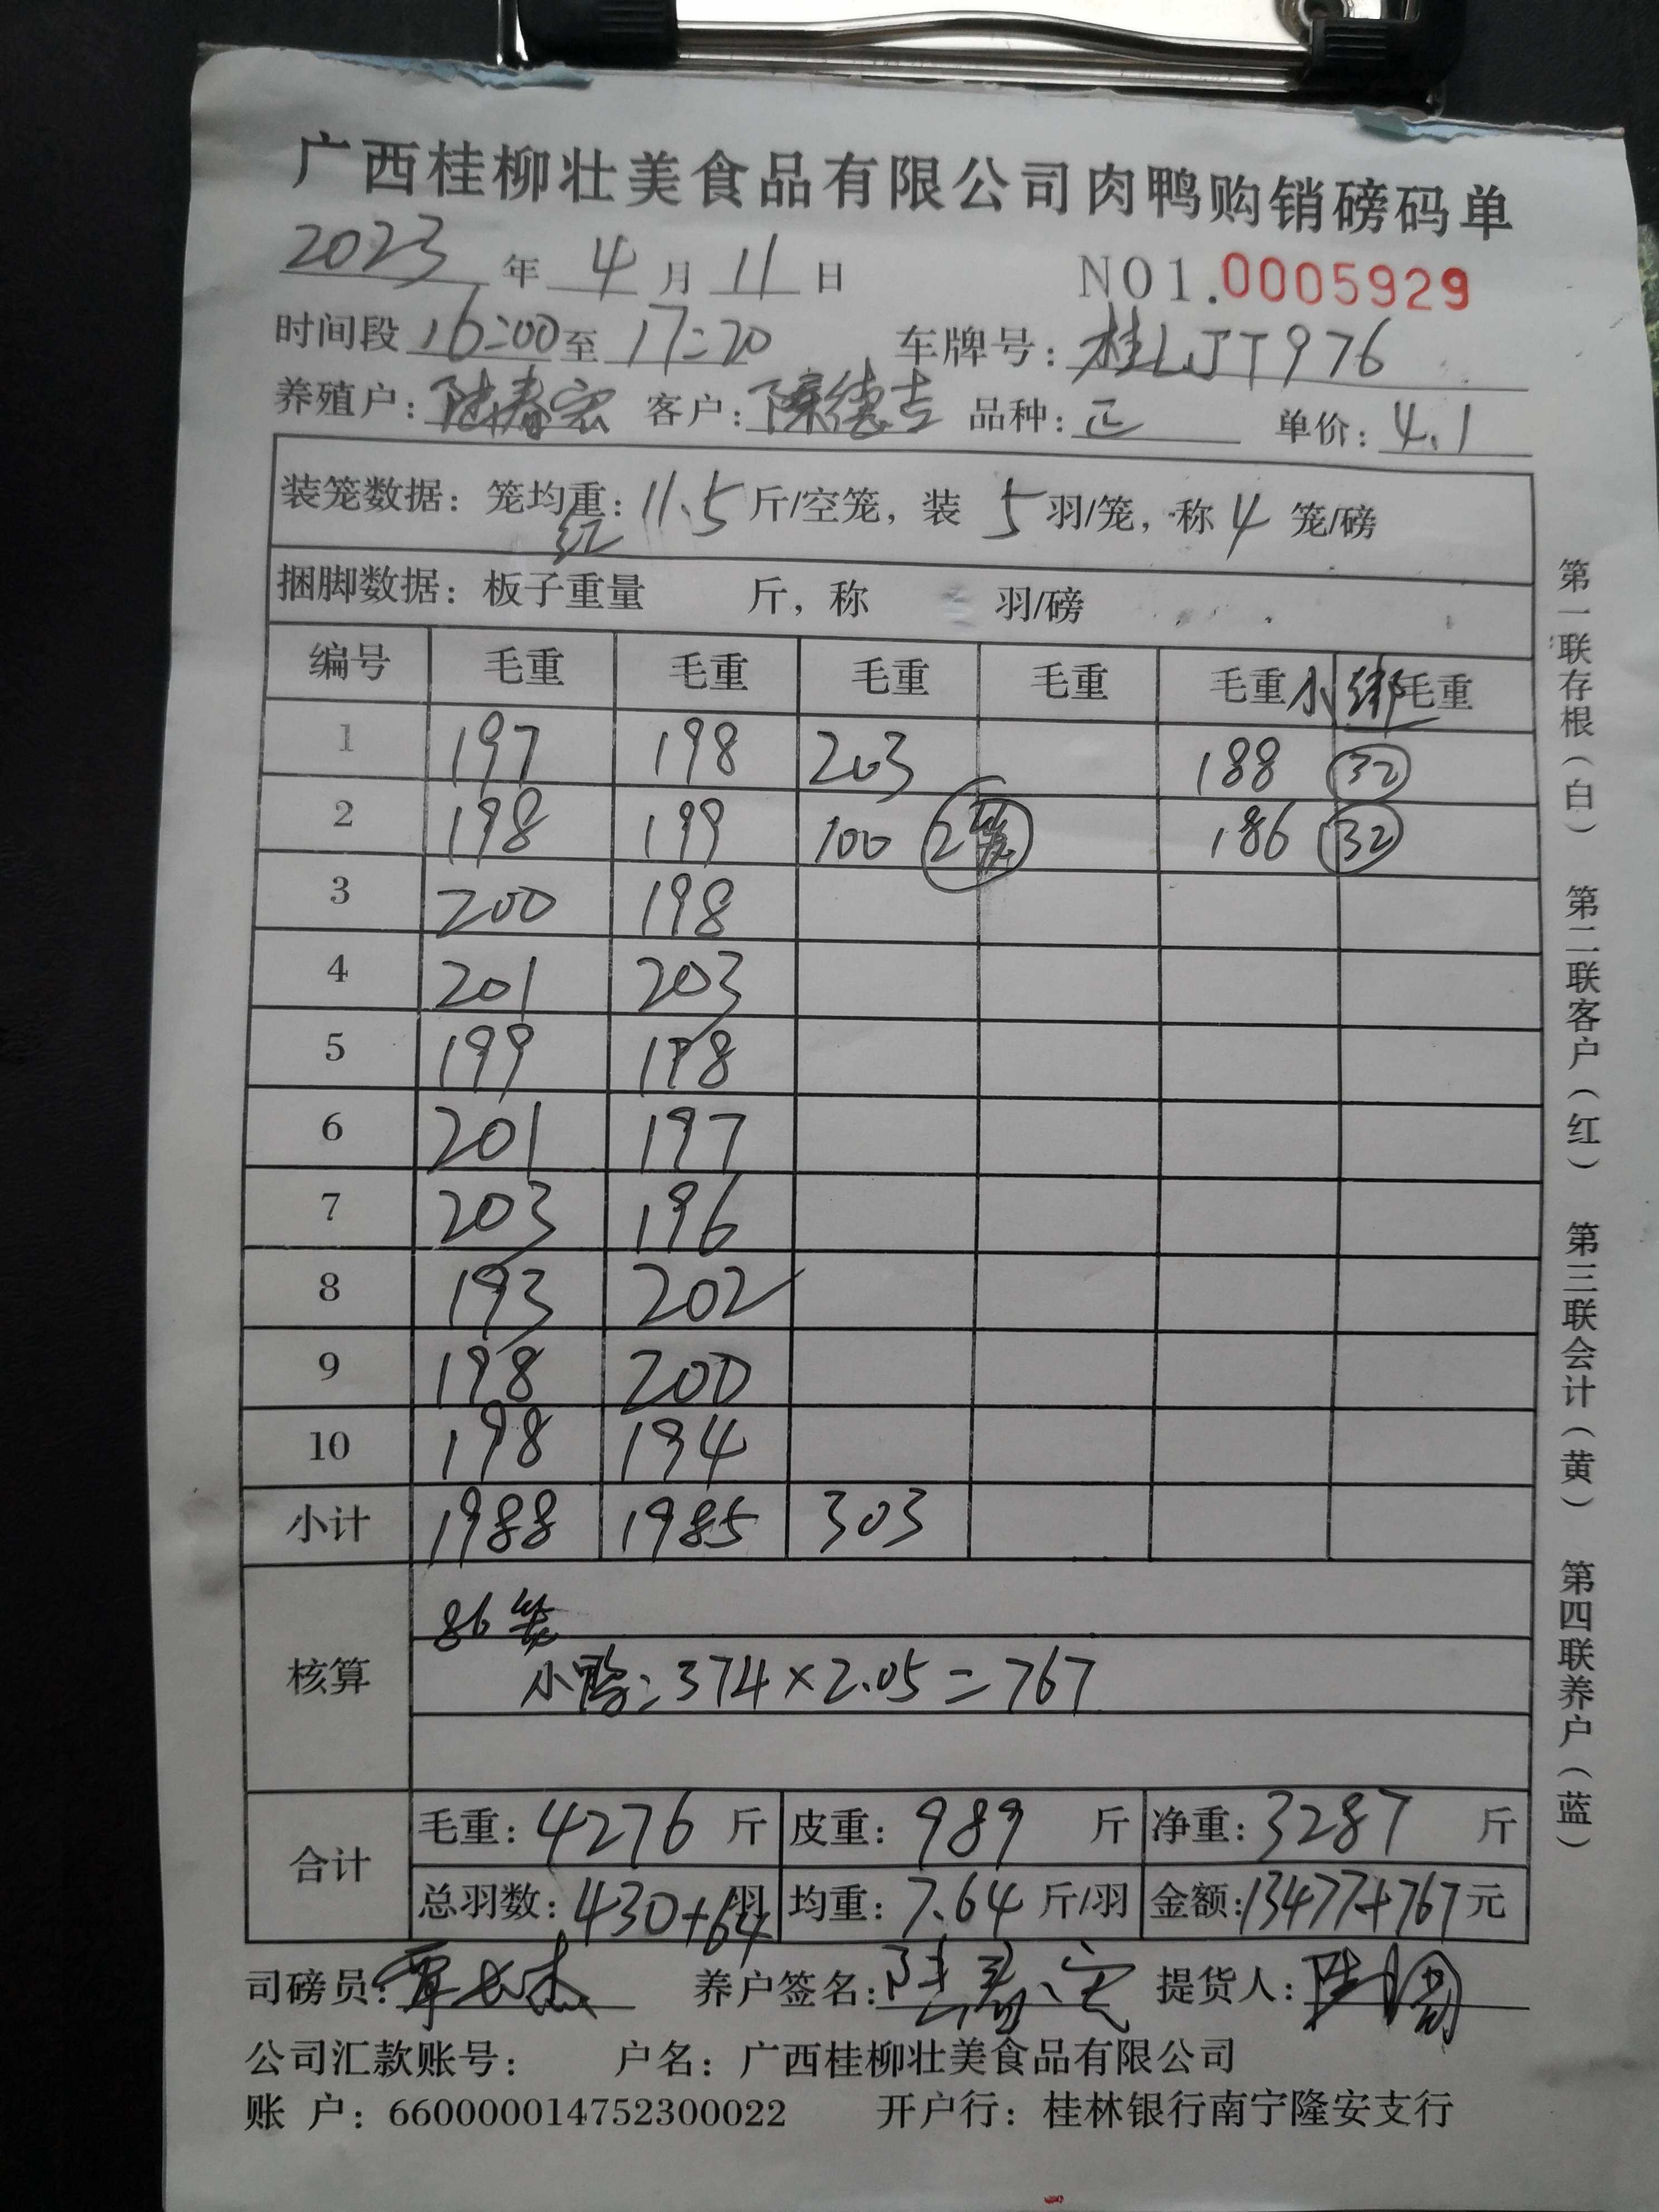 广西桂柳壮美食品有限公司肉鸭购销磅码单
2023 年 4 月 11 日 NO1.0005929
时间段 16:00 至 17:20 车牌号: 桂LJT976
养殖户: 陆春宏 客户: 陈德吉 品种: 正 单价: 4.1
装笼数据: 笼均重: 11.5 斤/空笼, 装 5 羽/笼, 称 4 笼/磅
红
捆脚数据: 板子重量 斤, 称 羽/磅
编号 毛重 毛重 毛重 毛重 毛重 小绑 毛重
1 197 198 203 188 32
2 198 199 100 2笼 186 32
3 200 198
4 201 203
5 199 198
6 201 197
7 203 196
8 193 202
9 198 200
10 198 194
小计 1988 1985 303
核算
86笼
小鸭: 374×2.05=767
合计
毛重: 4276 斤 皮重: 989 斤 净重: 3287 斤
总羽数: 430+64 羽 均重: 7.64 斤/羽 金额: 13477+767 元
司磅员: 养户签名: 陆春宏 提货人:
公司汇款账号: 户名: 广西桂柳壮美食品有限公司
账 户: 660000014752300022 开户行: 桂林银行南宁隆安支行
第一联存根(白) 第二联客户(红) 第三联会计(黄) 第四联养户(蓝)